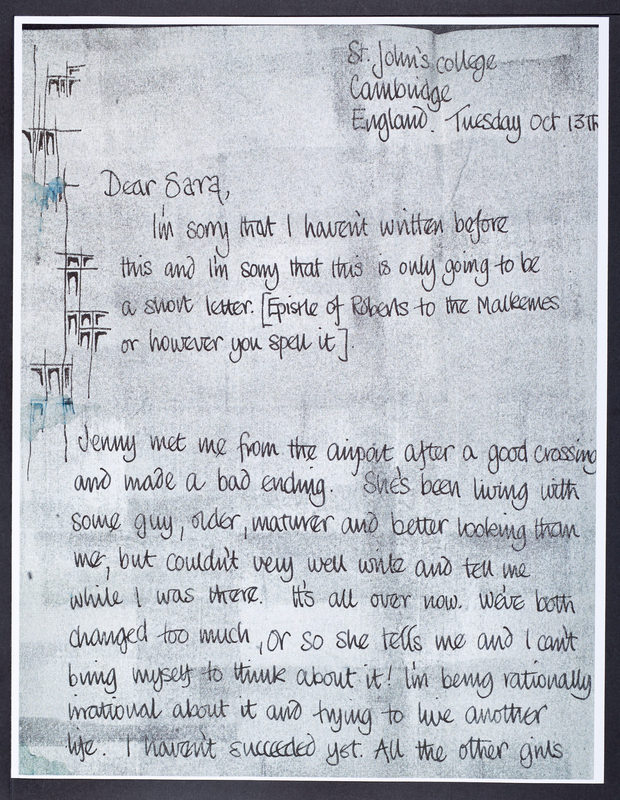 St. John's College
Cambridge
England. Tuesday Oct 13th
Dear Sara,
I'm sorry that I haven't written before
this and I'm sorry that this is only going to be
a short letter. [Epistle of Roberts to the Malkemes
or however you spell it].
Jenny met me from the airport after a good crossing
and made a bad ending. She's been living with
some guy, older, maturer and better looking than
me, but couldn't very well write and tell me
while I was there. It's all over now. We've both
changed too much, or so she tells me and I can't
bring myself to think about it! I'm being rationally
irrational about it and trying to live another
life. I haven't succeeded yet. All the other girls